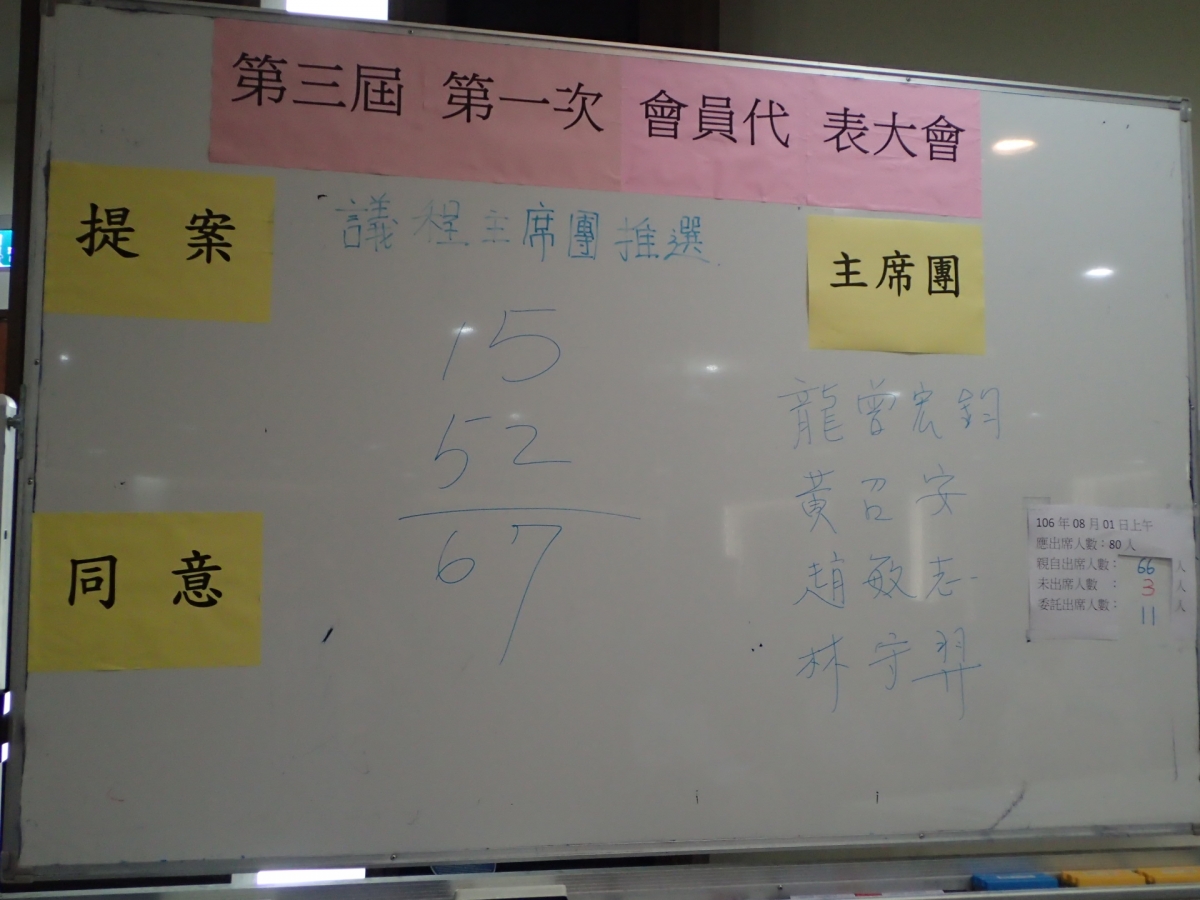 第三屆 第一次 會員代表大會
提案
議程主席團推選
主席團
15
52
67
同意
龍曾宏鈞
黃召安
趙敏志
林守羿
106 年 08 月 01 日上午
應出席人數：80 人
親自出席人數： 66 人
未出席人數 ： 3 人
委託出席人數： 11 人